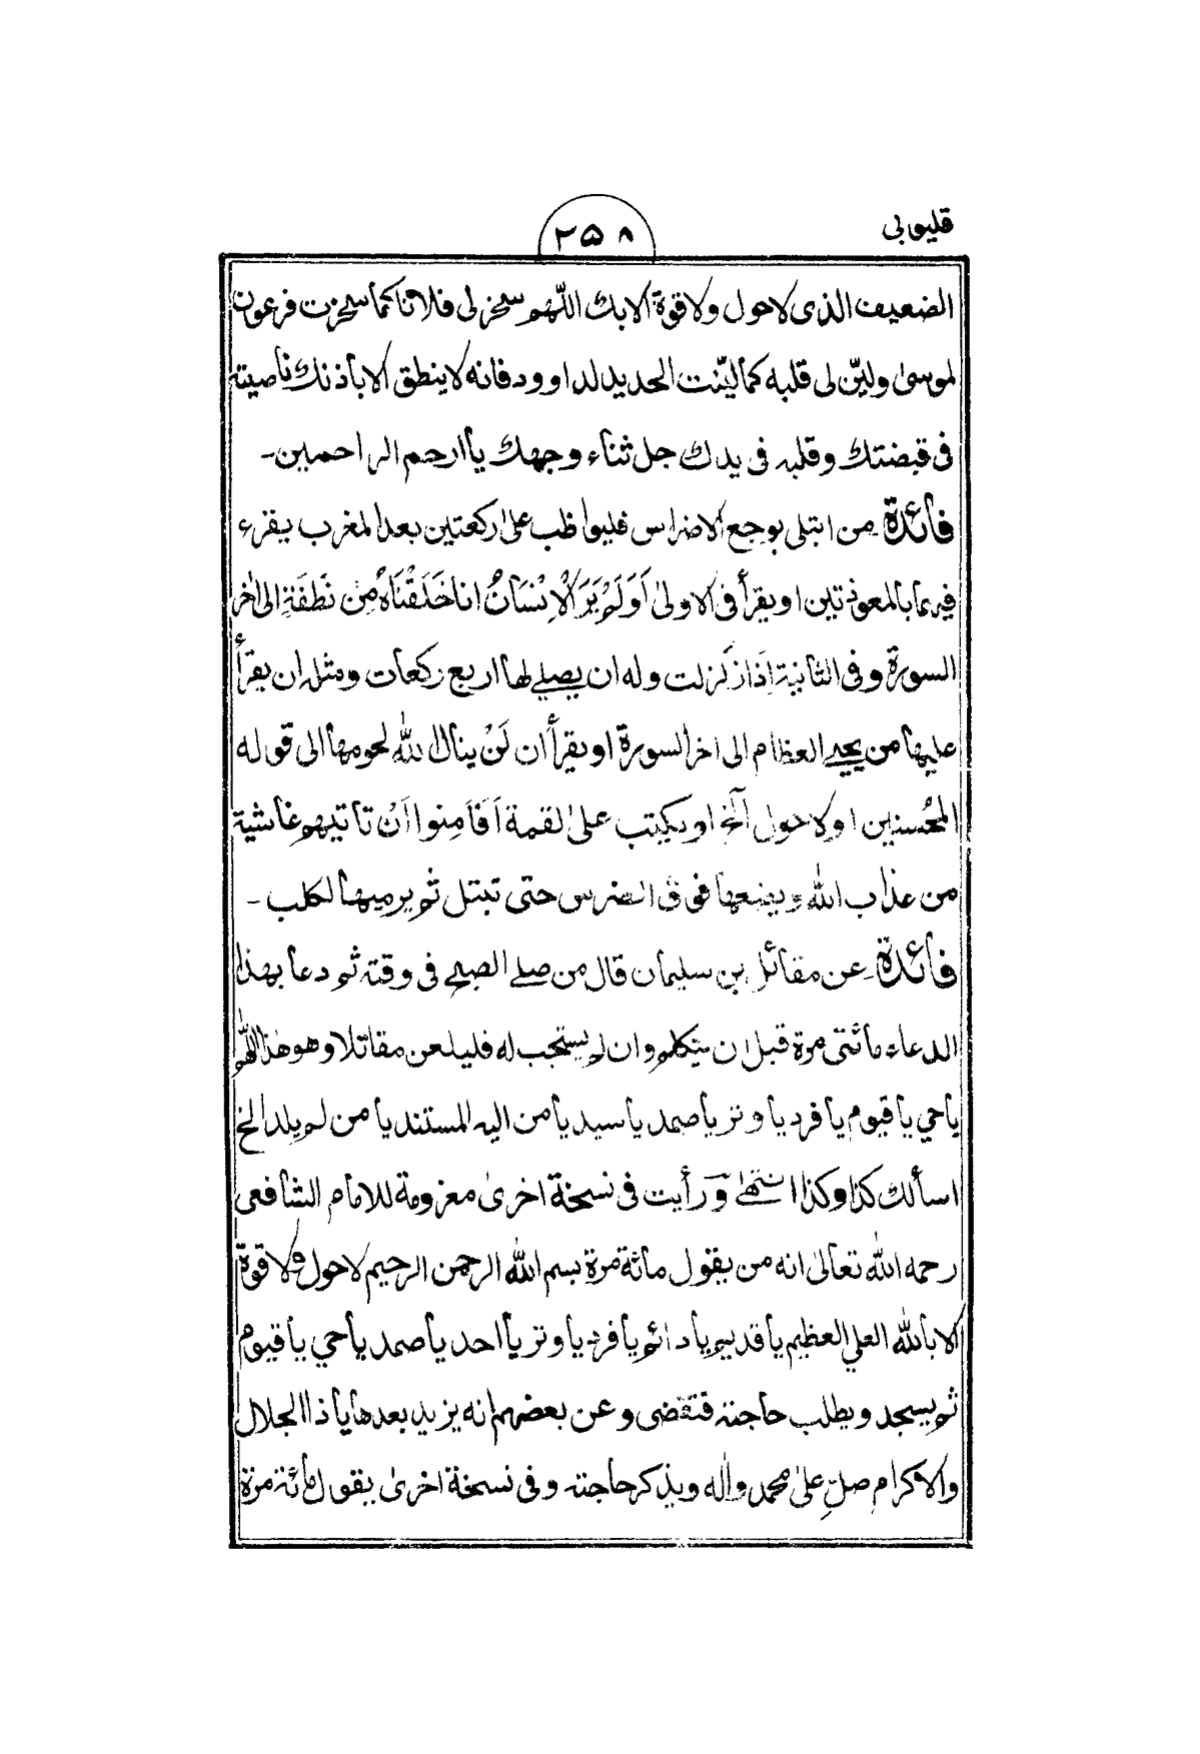 قليوبى
٢٥٨
الضعيف الذى لاحول ولاقوة الابك اللّهم سخر لى فلانا كما سخرت فرعون
لموسىٰ وليّن لى قلبه كما ليّنت الحديد لداوود فانه لاينطق الاباذنك ناصيته
فى قبضتك وقلبه فى يدك جل ثناء وجهك ياارحم الراحمين۔
فائدة۔ من ابتلى بوجع الاضراس فليواظب علىٰ ركعتين بعد المغرب يقرء
فيهما بالمعوذتين اويقرأ فى الاولىٰ اَوَلَمْ يَرَ الْاِنْسَانُ انا خَلَقْنَاهُ مِنْ نُطْفَةٍ الىٰ اٰخر
السورة وفى الثانية اِذَا زُلزلت وله ان يصلے لها اربع ركعات ومثله ان يقرأ
عليها من يحيے العظام الى اخر السورة اويقرأ ان لَنْ ينال اللّٰه لحومها الى قوله
المُحسنين اولاحول الخ اويكتب علىٰ لقمة اَفَاَمِنوا اَنْ تاتيهم غاشية
من عذاب اللّٰه ويضعها فوق الضرس حتى تبتل ثم يرميها لكلب ۔
فائدة۔ عن مقاتل بن سليمان قال من صلے الصبح فى وقته ثم دعا بهذا
الدعاء مائتى مرة قبل ان يتكلم وان لم يستجب له فليلعن مقاتلا وهو هٰذا اللّٰهم
ياحي ياقيوم يافرد ياوتر ياصمد ياسيد يامن اليه المستند يامن لم يلد الخ
اسألك كذا وكذا انتهىٰ ورأيت فى نسخة اخرىٰ معزومة للامام الشافعى
رحمه اللّٰه تعالىٰ انه من يقول مائة مرة بسم اللّٰه الرحمٰن الرحيم لاحول ولاقوة
الاباللّٰه العلي العظيم ياقديم يادائم يافرد ياوتر يااحد ياصمد ياحي ياقيوم
ثم يسجد ويطلب حاجته فتقضى وعن بعضهم انه يزيد بعدها ياذا الجلال
والاكرام صلِّ علىٰ محمد واٰله ويذكر حاجته وفى نسخة اخرىٰ يقول مائة مرة